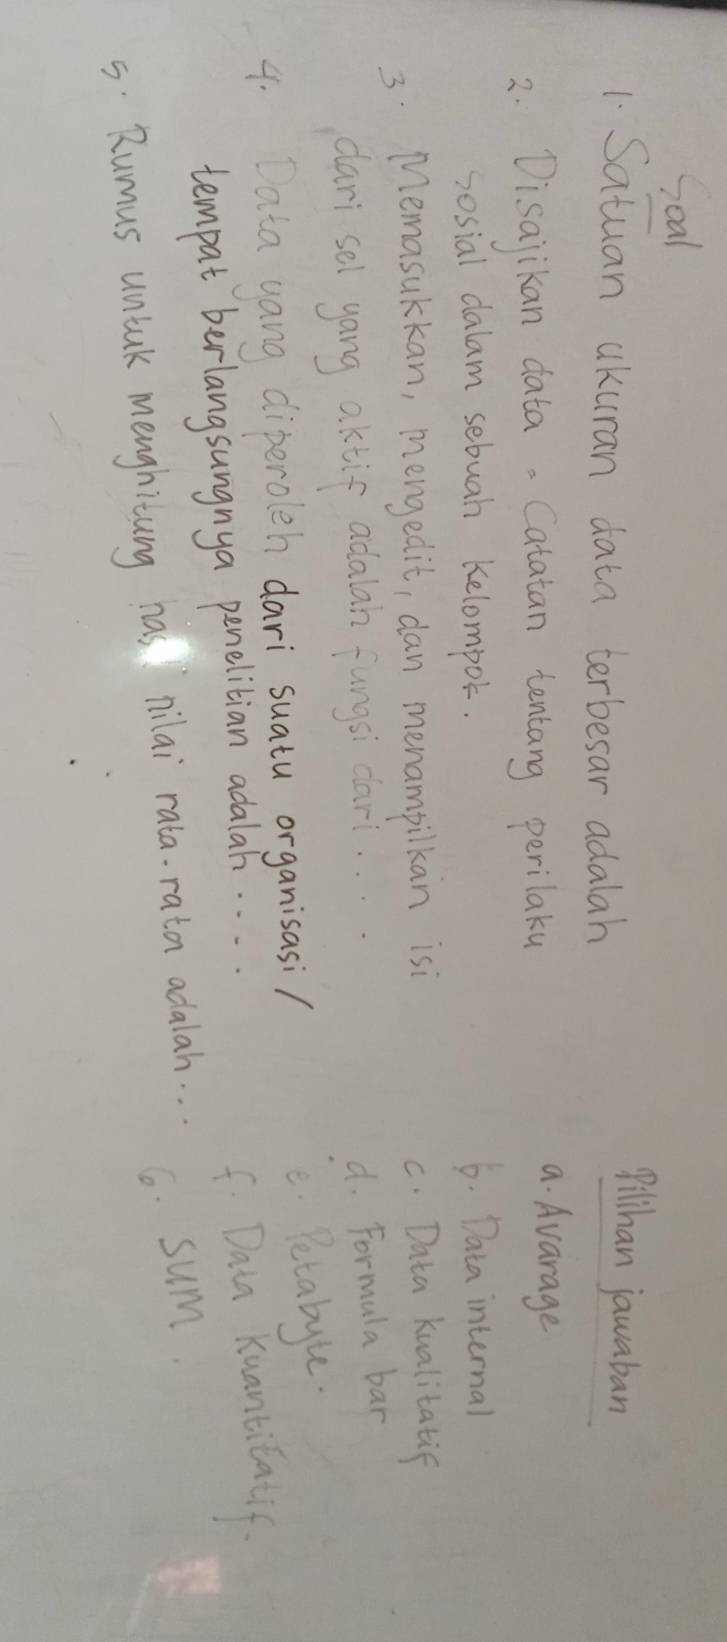 Soal
1. Satuan ukuran data terbesar adalah
2. Disajikan data = Catatan tentang perilaku
sosial dalam sebuah kelompok.
3. Memasukkan, mengedit, dan menampilkan isi
dari sel yang aktif adalah fungsi dari....
4. Data yang diperoleh dari suatu organisasi/
tempat berlangsungnya penelitian adalah....
5. Rumus untuk menghitung nilai rata-rata adalah...
Pilihan jawaban
a. Avarage
b. Data internal
c. Data kualitatif
d. Formula bar
e. Petabyte.
f. Data Kuantitatif.
6. SUM.